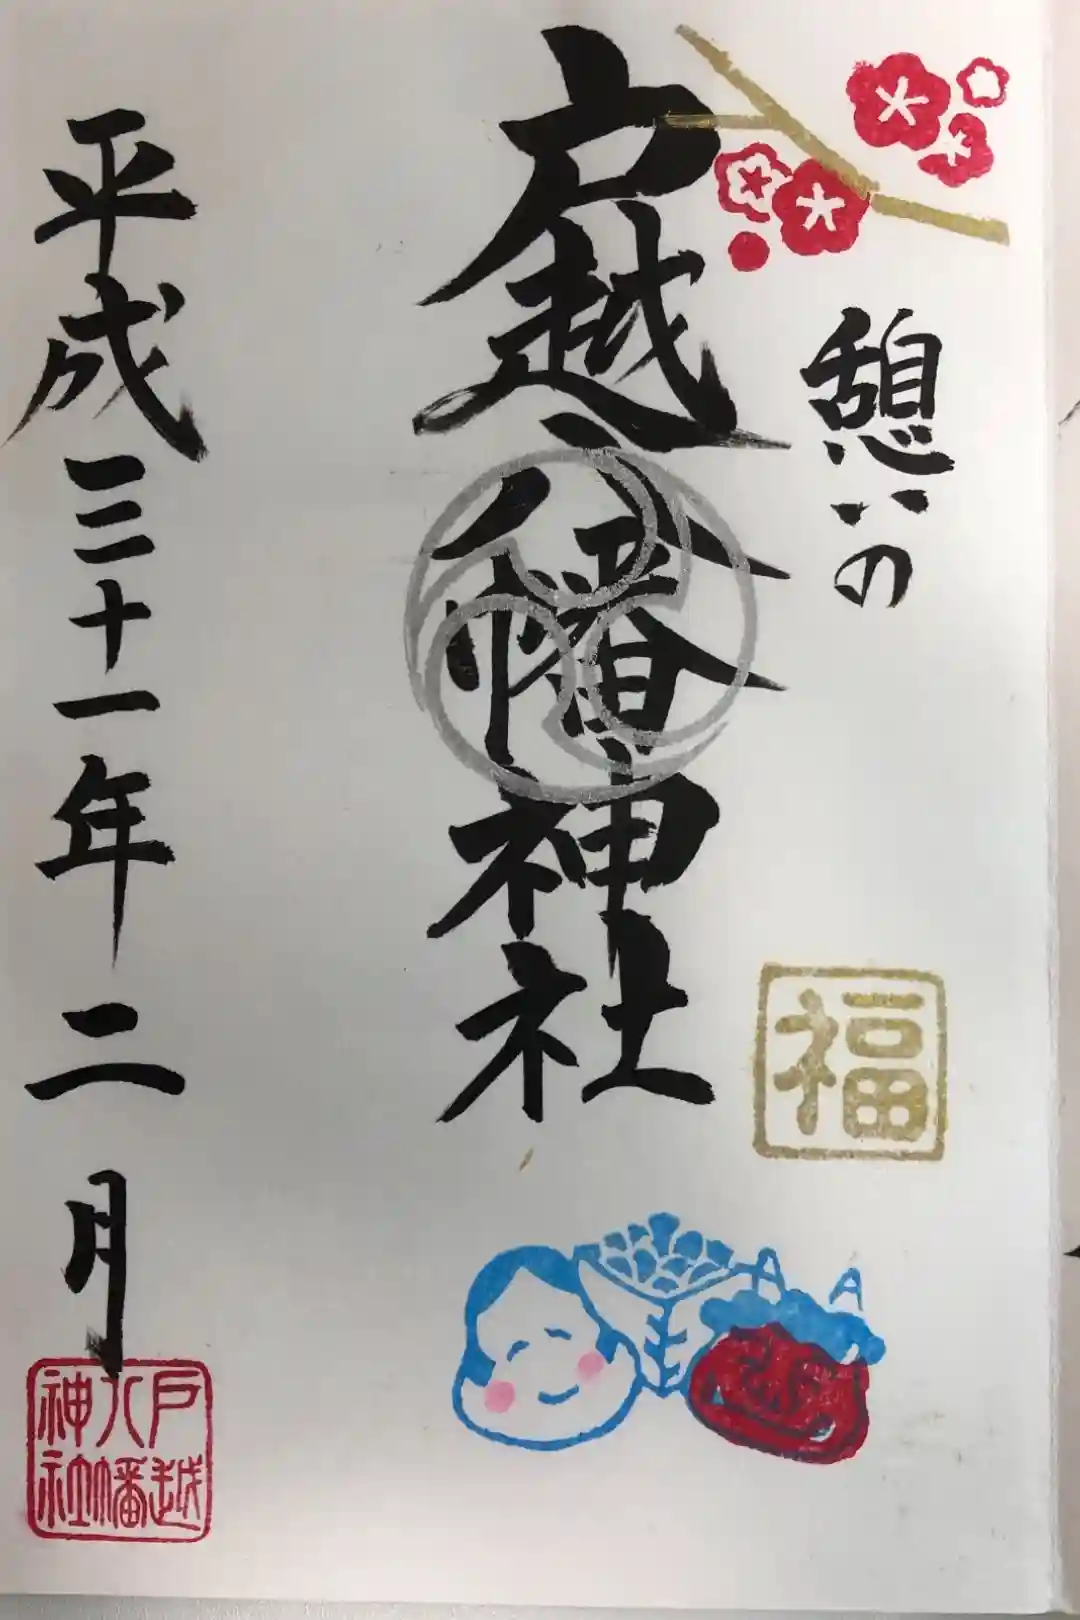 憩いの
福
戸越八幡神社
平成三十一年二月
戸越
八幡
神社